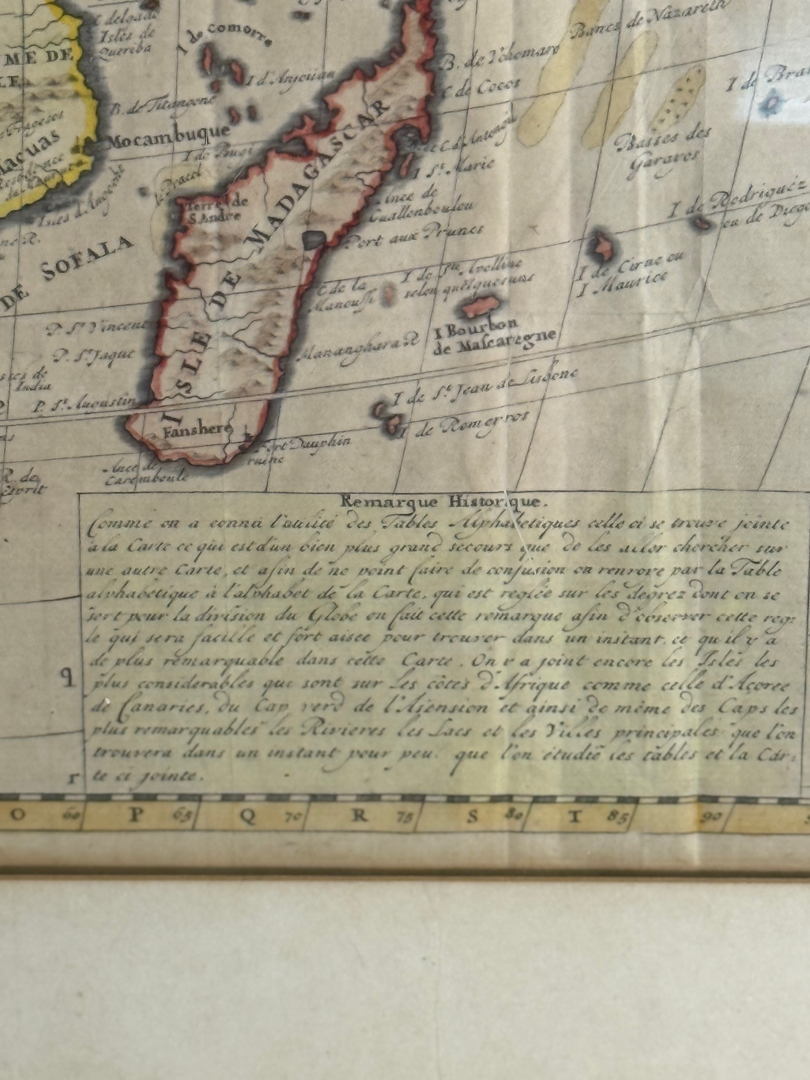 C delgado
Isles de
Queriba
I de Comorre
I d'Anjoüan
B. de Vohemaro
C de Cocos
Bancs de Nazareth
I de Bran
ME DE
B. de Titangone
Mocambuque
Macuas
Isles d'Angoche
le Pracel
Terre de
S. Andre
ISLE DE MADAGASCAR
I Ste. Marie
Ance de
Port aux Prunes
Basses des
Garayos
I de Rodriguéz
ou de Diego
I de Cirne ou
I Maurice
DE SOFALA
C de la
Manouffi
I de Ste. Apolline
selon quelquesuns
I Bourbon
de Mascaregne
P. St. Vincent
P. St. Jaque
India
P. St. Augustin
Mananghara R
I de St. Jean de Lisbone
I de Romeyros
Fanshere
Fort Dauphin
ruine
Ance de
Caremboule
R. de
Remarque Historique.
Comme on a connu l'utilité des Tables Alphabetiques celle ci se trouve jointe
a la Carte ce qui est d'un bien plus grand secours que de les aller chercher sur
une autre Carte, et afin de ne point faire de confusion on renvoye par la Table
alphabetique à l'alphabet de la Carte, qui est reglée sur les degrez dont on se
sert pour la division du Globe on fait cette remarque afin d'observer cette reg:
le qui sera facille et fort aisee pour trouver dans un instant ce qu'il y a
de plus remarquable dans cette Carte. On y a joint encore les Isles les
plus considerables qui sont sur les côtes d'Afrique comme celle d'Açores
de Canaries, du Cap verd de l'Asension et ainsi de même des Caps les
plus remarquables les Rivieres les Lacs et les Villes principales que l'on
trouvera dans un instant pour peu que l'on étudie les tables et la Car:
te ci jointe.
q
r
O 60 P 65 Q 70 R 75 S 80 T 85 90